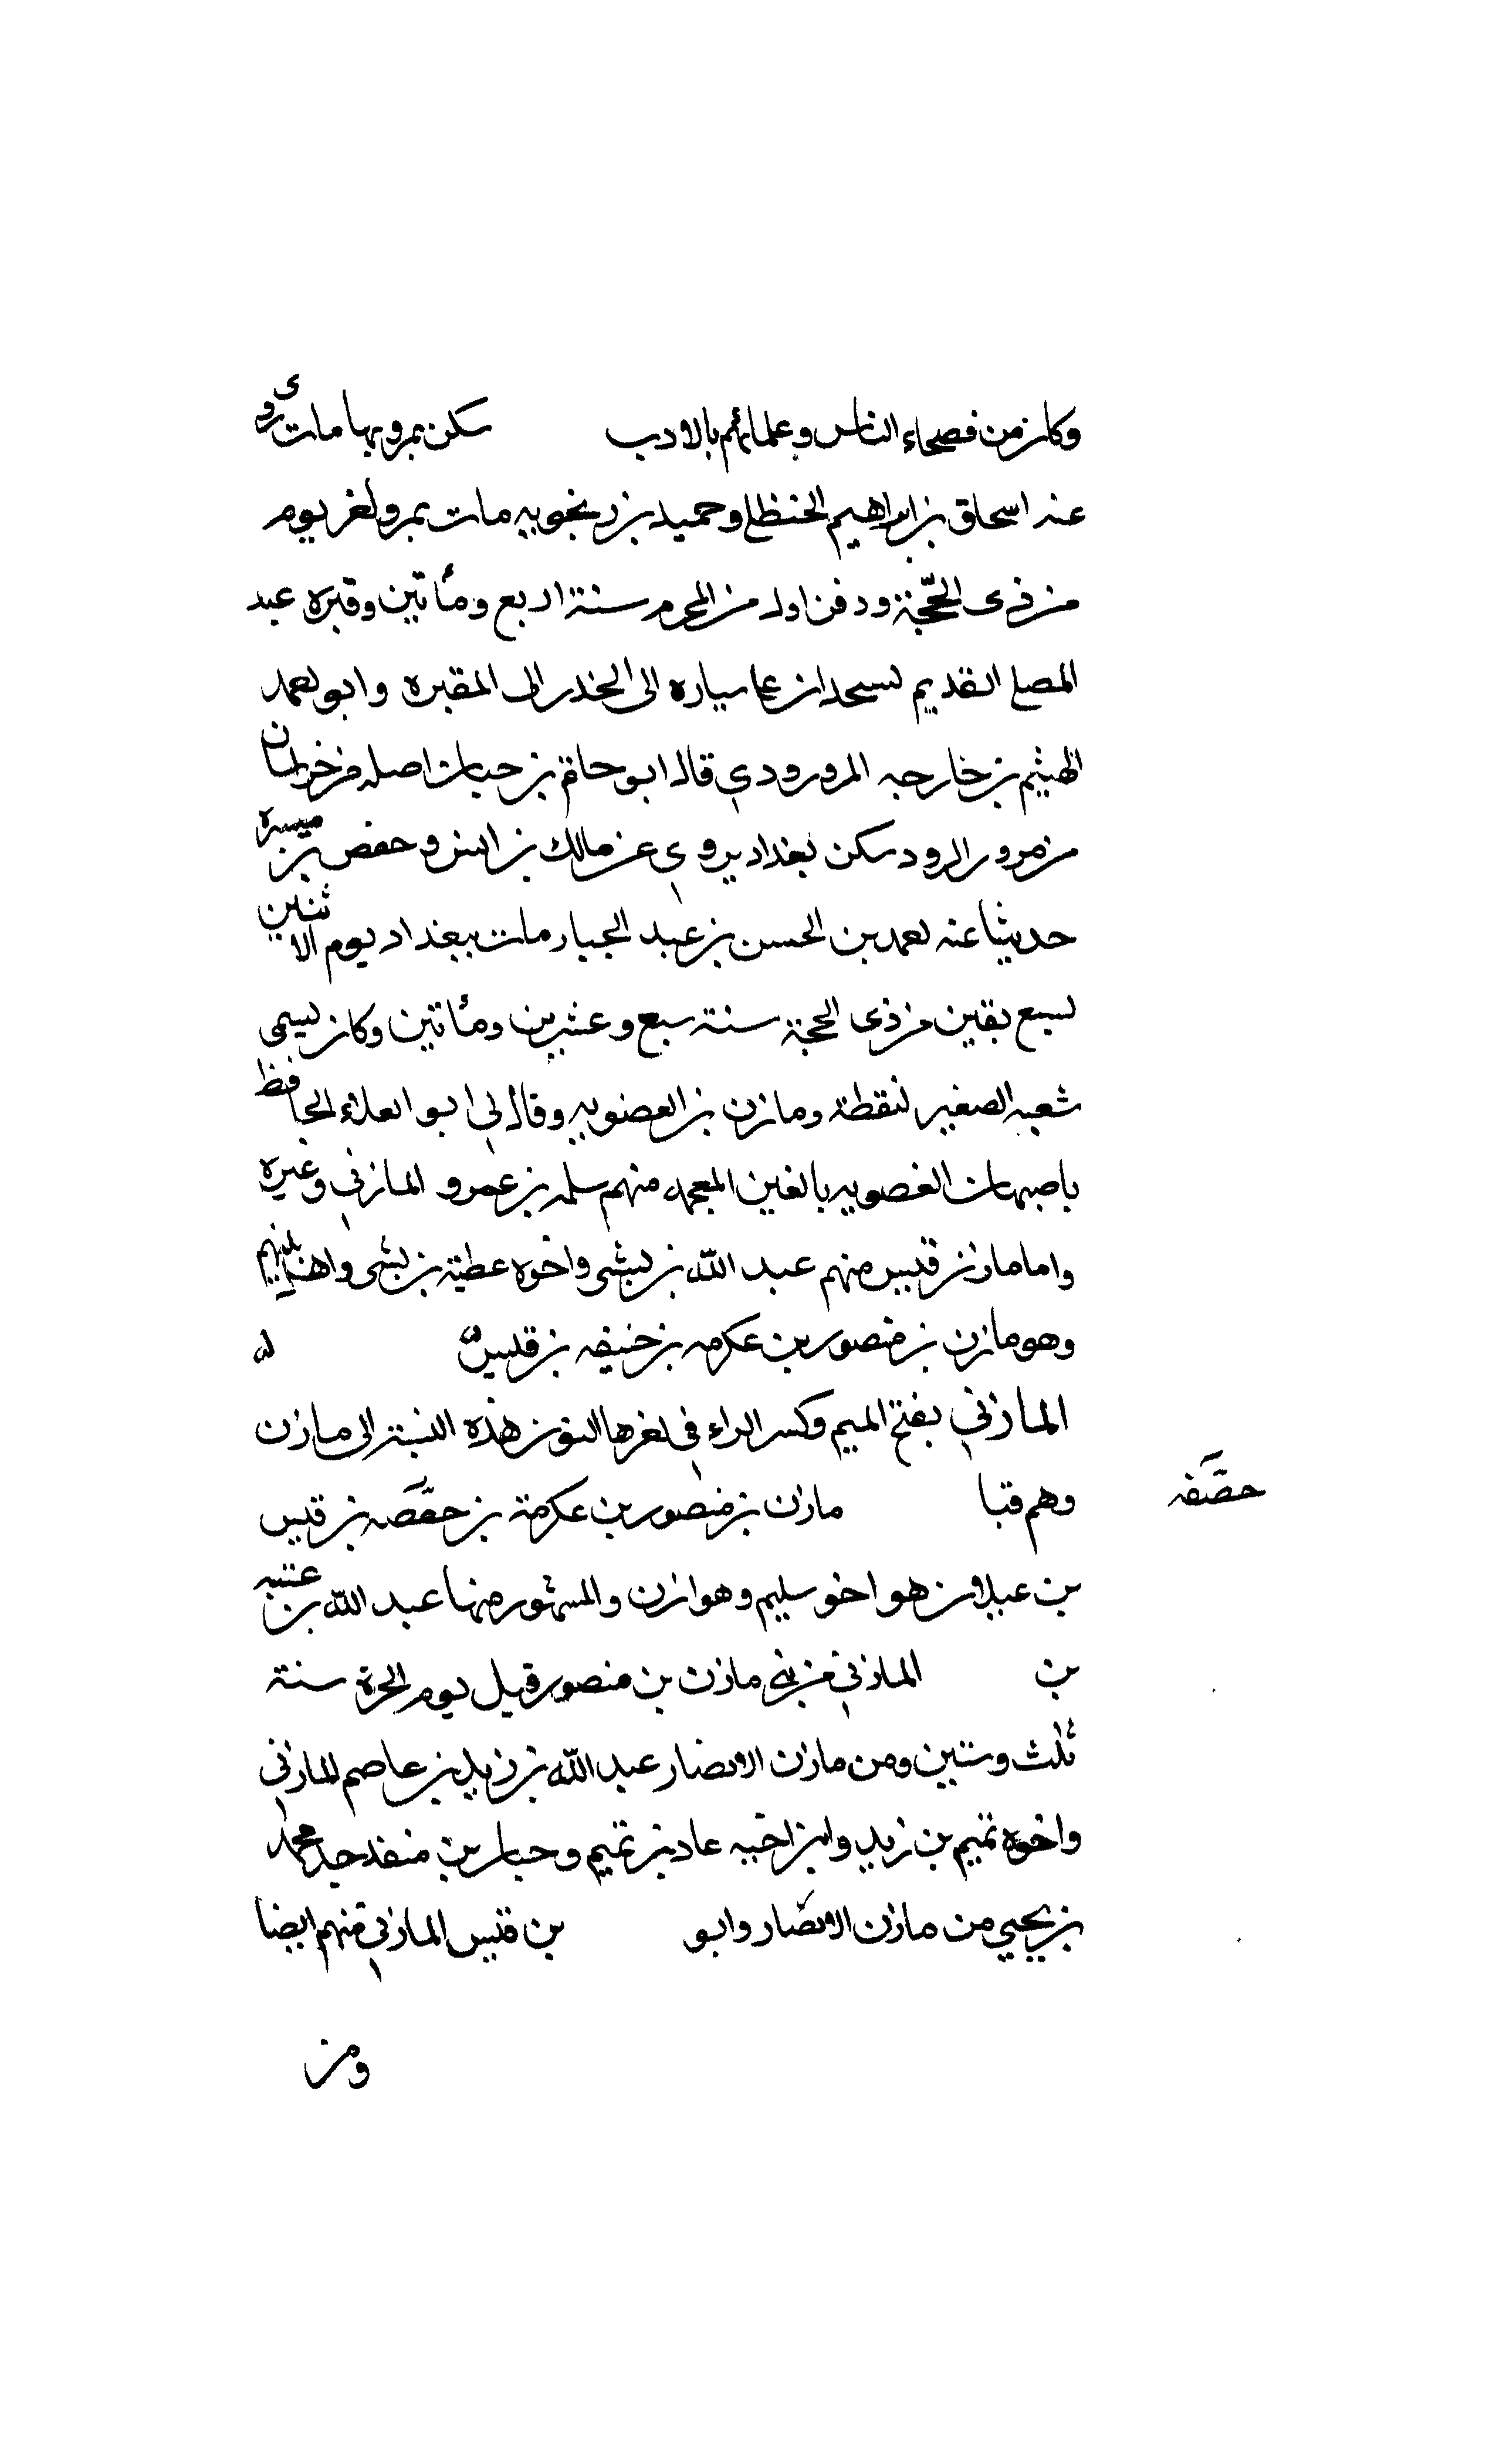 وكان من فصحاء الناس وعلمائهم بالادب سكن بمرو وبها مات روى
عنه اسحاق بن ابراهيم الحنظلي وحميد بن زنجويه مات بمرو لغر يوم
من ذى الحجة ودفن اول من المحرم سنة اربع ومأتين وقبره عبد
المصلى القديم الى المقبرة وابو لعمد
الهيثم بن خارجه المرورودي قال ابو حاتم بن حبان اصله من خراسان
من مرو الرود سكن بغداد يروي عن مالك بن انس وحفص بن ميسرة
حديثا عنه لعمد بن الحسن بن عبد الجبار مات ببغداد يوم الاثنين
لسبع بقين من ذى الحجة سنة سبع وعشرين ومأتين وكان يسمى
شعبه الصغير لنقطة ومازن بن العضويه وقال لي ابو العلاء الحافظ
باصبهان الغصويه بالغين المعجمه منهم سلمه بن عمرو المازني وغيره
واما مازن قيس منهم عبد الله بن بشى واخوه عطية بن بشى
وهو مازن بن منصور بن عكرمه بن خنيفه بن قيس
المازني بفتح الميم وكسر الراء في لغرها النون هذه النسبة الى مازن
وهم قبا مازن بن منصور بن عكرمة بن حفصه بن قيس
حصفه
بن عيلان هو اخو سليم وهوازن والمشهور منها عبد الله بن عتبه
بن المازني من بني مازن بن منصور قيل يوم الحرة سنة
ثلث وستين ومن مازن الانصار عبد الله بن زيد بن عاصم المازني
واخوه تميم بن زيد وابن اخيه عاد بن تميم وحبان بن منقد جد محمد
بن يحيي من مازن الانصار وابو بن قيس المازني منهم ايضا
ومن